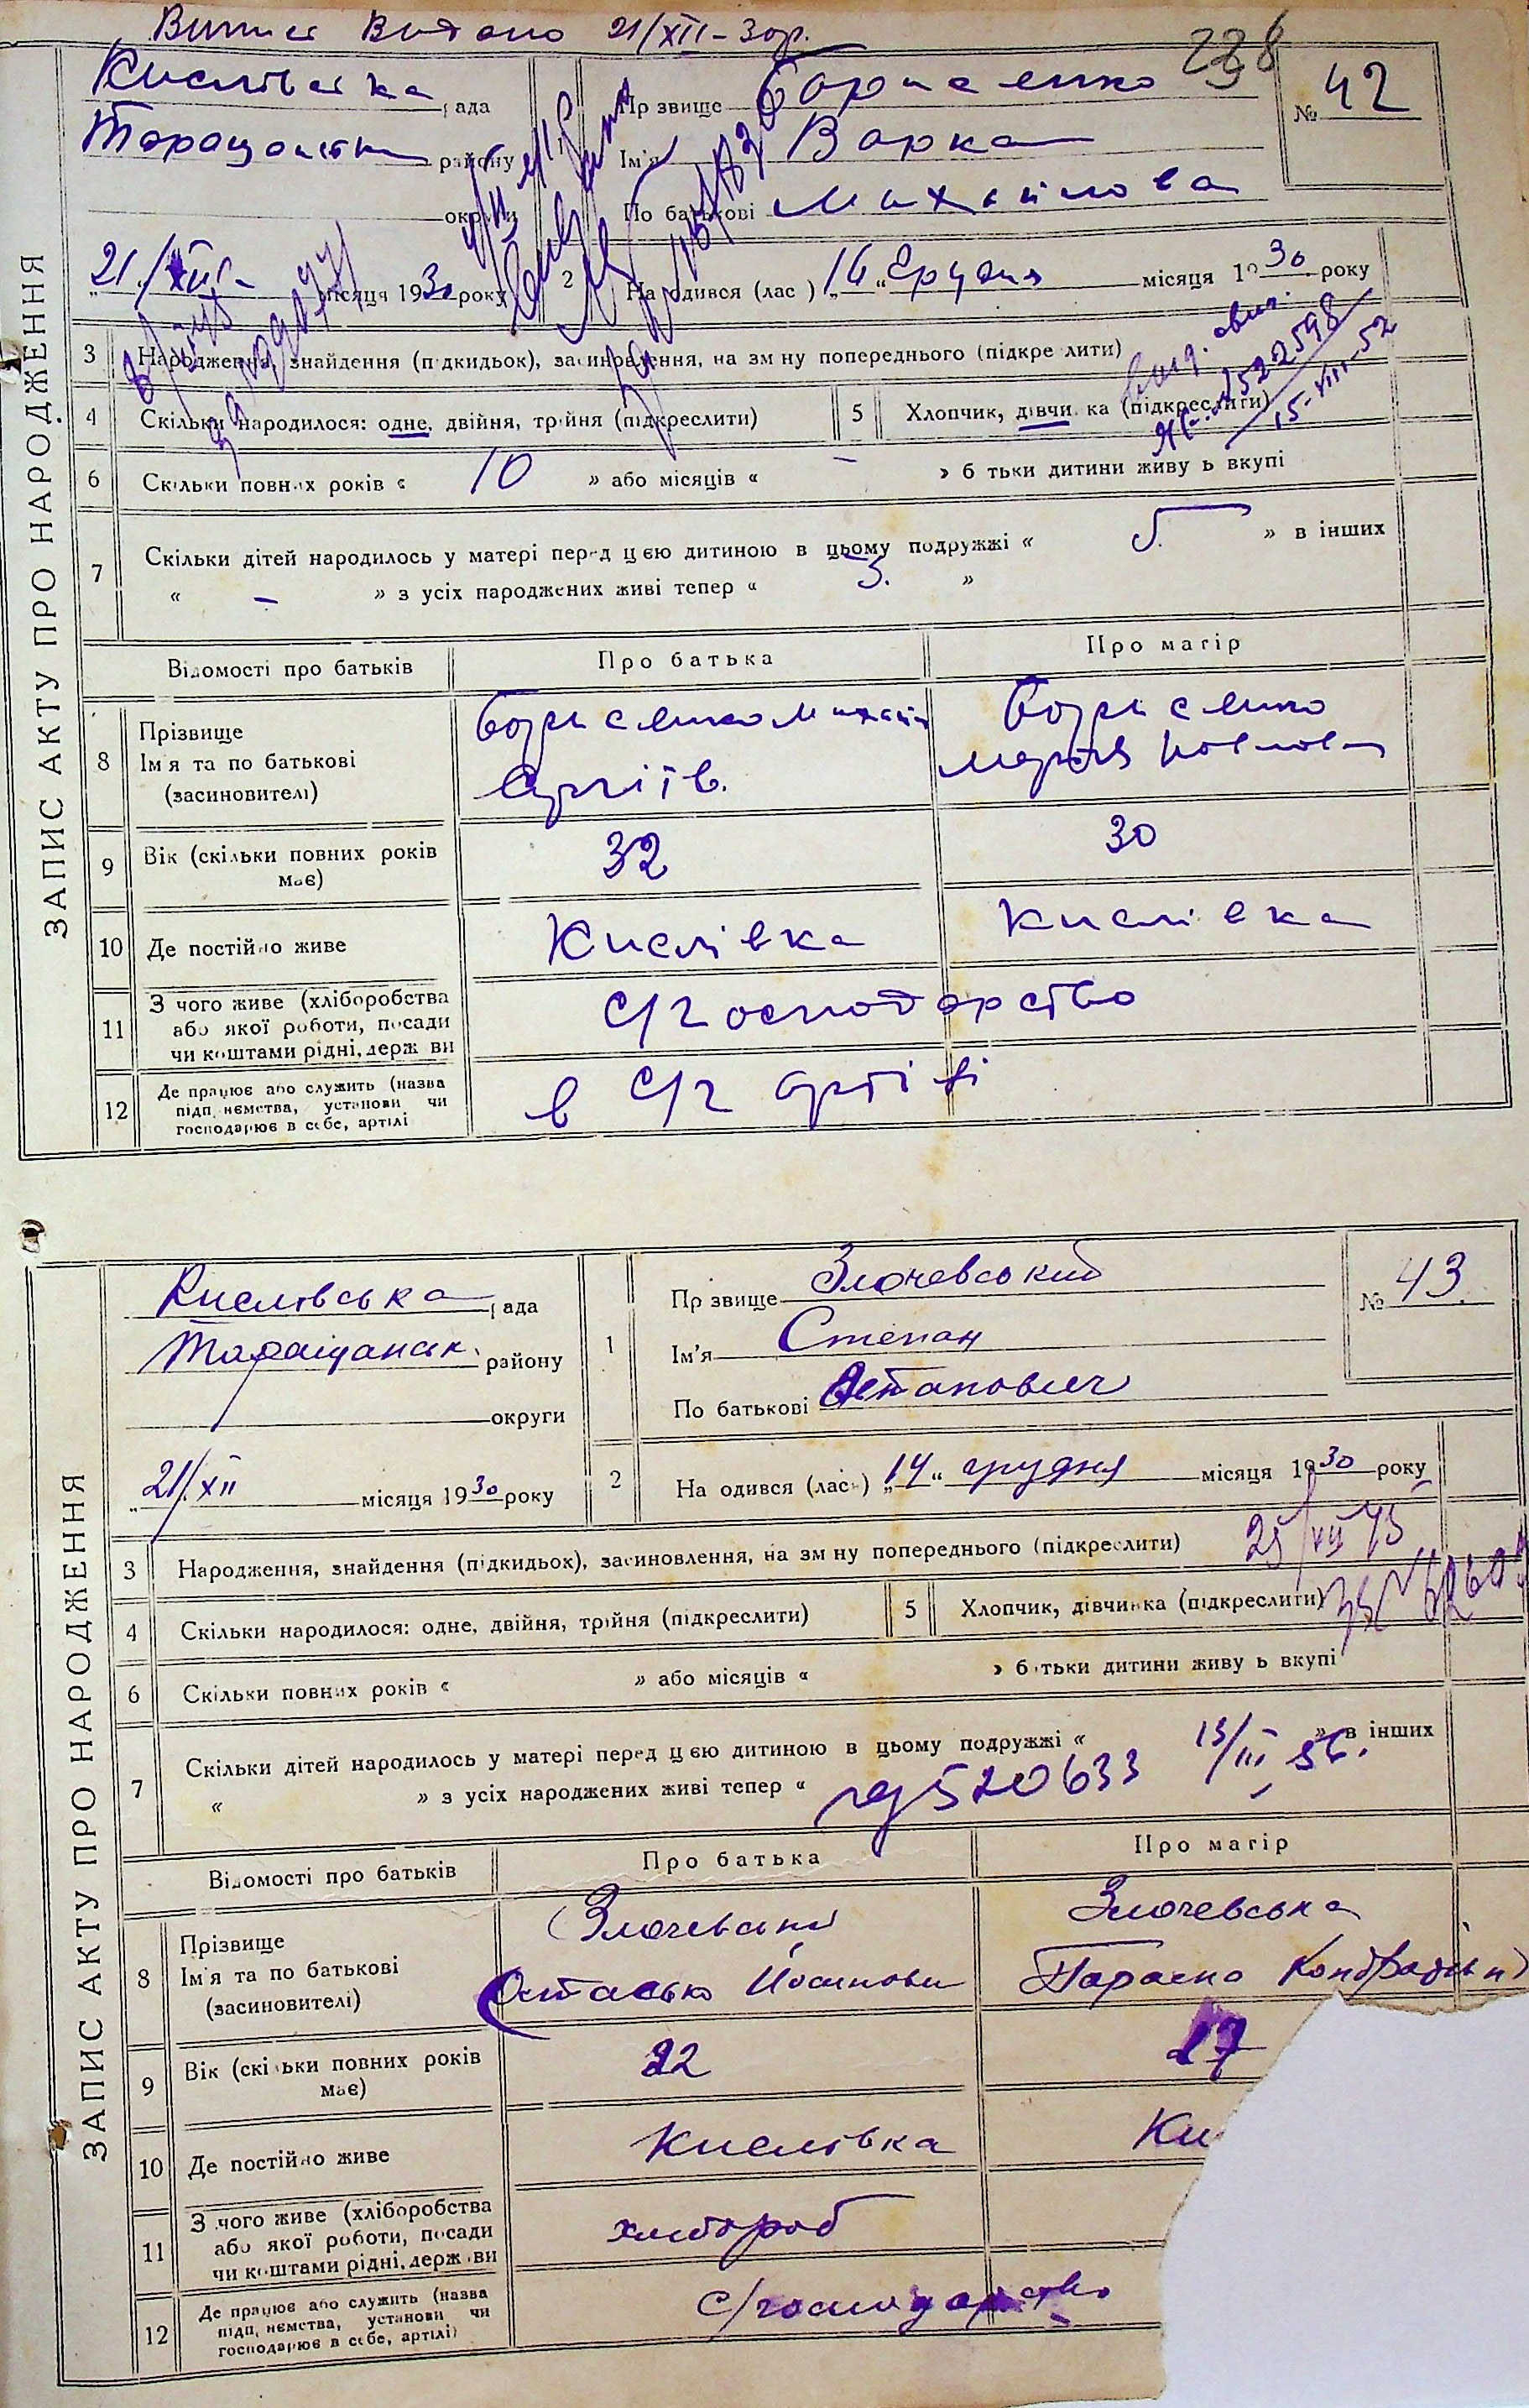 Випис Видано 21/XII-30р.
238
Кислівська рада
Таращанськ району
округи
Прізвище Борисенко
№ 42
Ім'я Варка
По батькові Михайлова
21/XII місяця 1930 року
2 Народився (лас) „16“ Грудня місяця 1930 року
3 Народження, знайдення (підкидьок), засиновлення, на зміну попереднього (підкреслити)
522598
15-VIII-52
4 Скільки народилося: одне, двійня, трійня (підкреслити)
5 Хлопчик, дівчинка (підкреслити)
6 Скільки повних років « 10 » або місяців « – » батьки дитини живуть вкупі
7 Скільки дітей народилось у матері перед цією дитиною в цьому подружжі « 5. » в інших
« – » з усіх народжених живі тепер « 3. »
Відомості про батьків
Про батька
Про матір
8 Прізвище Ім'я та по батькові (засновителі)
Борисенко Михайло
Сергіїв.
Борисенко
Марія Павловна
9 Вік (скільки повних років має)
32
30
10 Де постійно живе
Кислівка
Кислівка
11 З чого живе (хліборобства або якої роботи, посади чи коштами рідні, держави
С/господарство
12 Де працює або служить (назва підприємства, установи чи господарює в себе, артілі
в С/г артілі
ЗАПИС АКТУ ПРО НАРОДЖЕННЯ
Кислівська рада
Таращанськ. району
округи
1 Прізвище Злочевський
№ 43.
Ім'я Степан
По батькові Остапович
21/XII місяця 1930 року
2 Народився (лась) „14“ грудня місяця 1930 року
3 Народження, знайдення (підкидьок), засиновлення, на зміну попереднього (підкреслити)
4 Скільки народилося: одне, двійня, трійня (підкреслити)
5 Хлопчик, дівчинка (підкреслити)
6 Скільки повних років « » або місяців « » батьки дитини живуть вкупі
7 Скільки дітей народилось у матері перед цією дитиною в цьому подружжі « » в інших
« » з усіх народжених живі тепер «
520633 13/III 56.
Відомості про батьків
Про батька
Про матір
8 Прізвище Ім'я та по батькові (засиновителі)
Злочевський
Остасько Йосипови
Злочевська
Параска Кондратівн
9 Вік (скільки повних років має)
22
27
10 Де постійно живе
Кислівка
Ки
11 З чого живе (хліборобства або якої роботи, посади чи коштами рідні, держави
хлібороб
12 Де працює або служить (назва підприємства, установи чи господарює в себе, артілі)
С/господарство
ЗАПИС АКТУ ПРО НАРОДЖЕННЯ